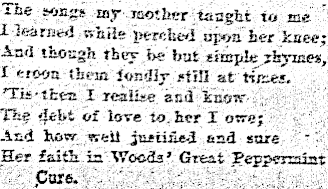 The songs my mother taught to me
I learned while perched upon her knee;
And though they be but simple rhymes,
I croon them fondly still at times.
'Tis then I realise and know
The debt of love to her I owe;
And how well justified and sure
Her faith in Woods' Great Peppermint
Cure.